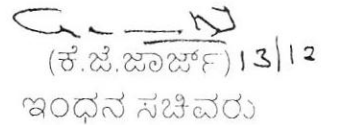 (ಕೆ.ಜೆ.ಜಾರ್ಜ್) 13/12
ಇಂಧನ ಸಚಿವರು